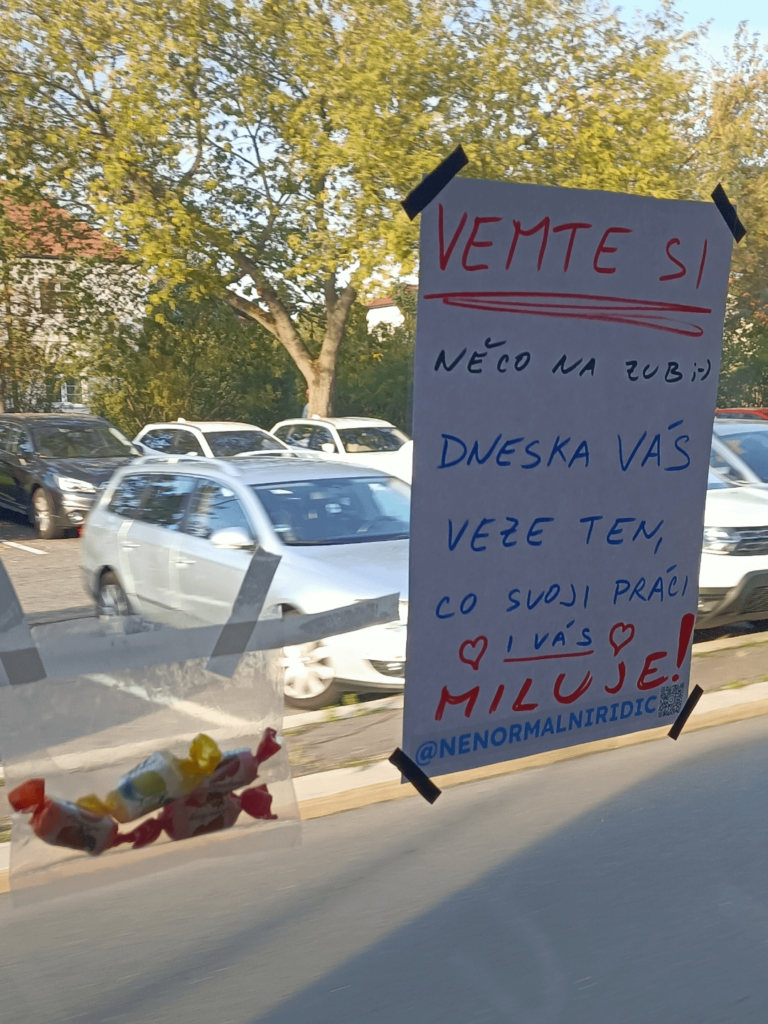 VEMTE SI
NĚCO NA ZUB ;-)
DNESKA VÁS
VEZE TEN,
CO SVOJI PRÁCI
♡ I VÁS ♡
MILUJE!
@NENORMALNIRIDIC